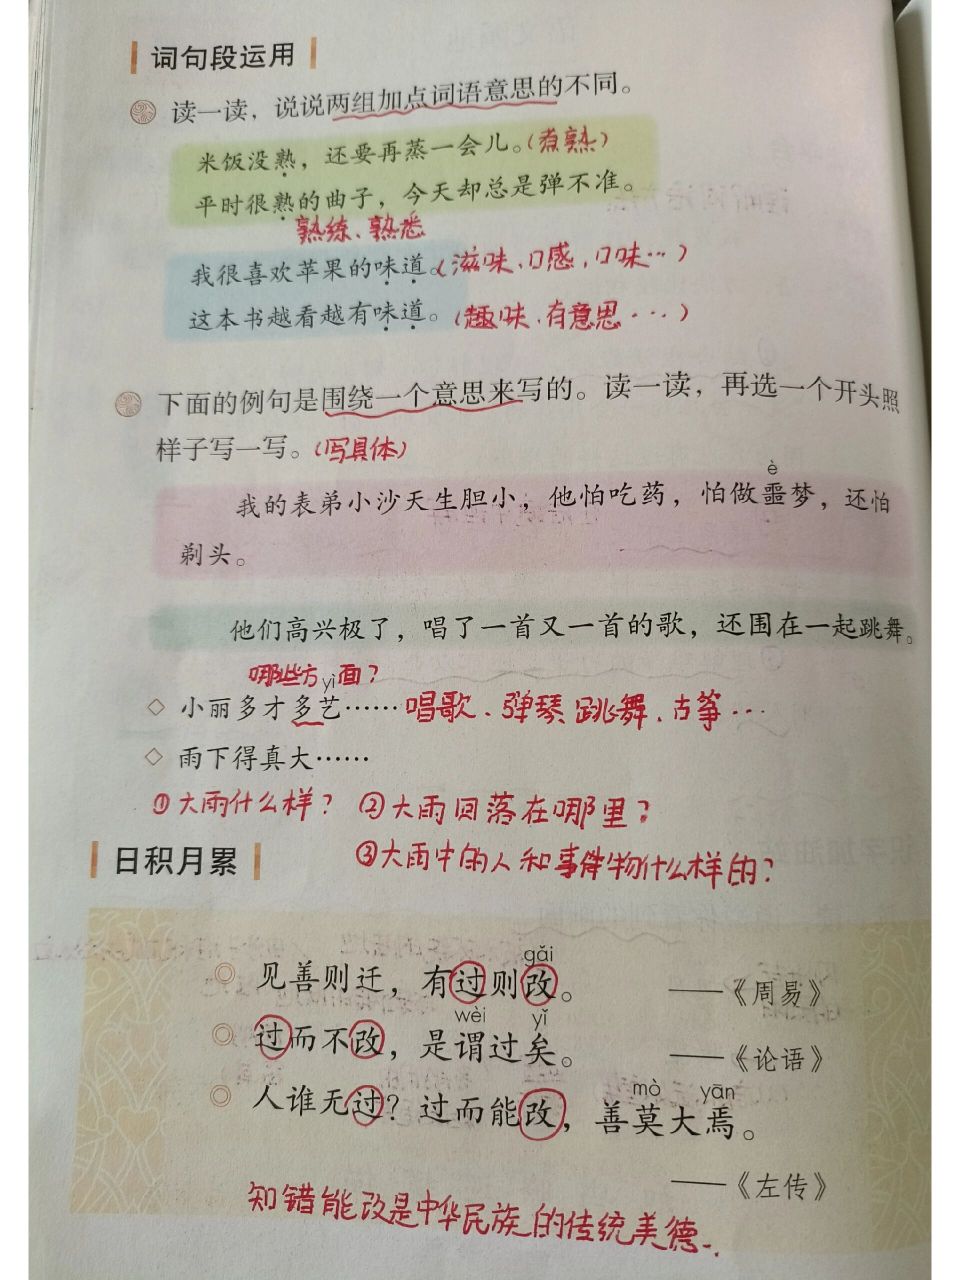 词句段运用
读一读，说说两组加点词语意思的不同。
米饭没熟，还要再蒸一会儿。（煮熟）
平时很熟的曲子，今天却总是弹不准。
熟练、熟悉
我很喜欢苹果的味道。（滋味、口感，口味…）
这本书越看越有味道。（趣味、有意思…）
下面的例句是围绕一个意思来写的。读一读，再选一个开头照
样子写一写。（写具体）
è
我的表弟小沙天生胆小，他怕吃药，怕做噩梦，还怕
剃头。
他们高兴极了，唱了一首又一首的歌，还围在一起跳舞。
哪些方面？
yì
小丽多才多艺……唱歌、弹琴、跳舞、古筝…
雨下得真大……
①大雨什么样？ ②大雨回落在哪里？
③大雨中的人和事件物什么样的？
日积月累
gǎi
见善则迁，有过则改。 ——《周易》
wèi yǐ
过而不改，是谓过矣。 ——《论语》
mò yān
人谁无过？过而能改，善莫大焉。
——《左传》
知错能改是中华民族的传统美德.